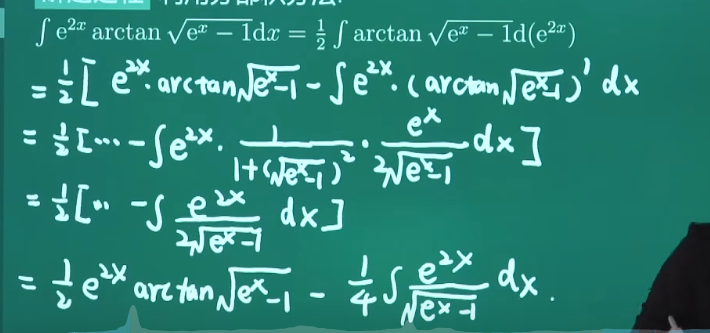 ∫ e^{2x} arctan √(e^x − 1)dx = 1/2 ∫ arctan √(e^x − 1)d(e^{2x})
= 1/2 [ e^{2x}·arctan√(e^x−1) − ∫e^{2x}·(arctan√(e^x−1))' dx
= 1/2 [··· − ∫e^{2x}· 1/(1+(√(e^x−1))^2) · e^x/(2√(e^x−1)) dx ]
= 1/2 [·· − ∫ e^{2x}/(2√(e^x−1)) dx ]
= 1/2 e^{2x} arctan√(e^x−1) − 1/4 ∫ e^{2x}/√(e^x−1) dx.